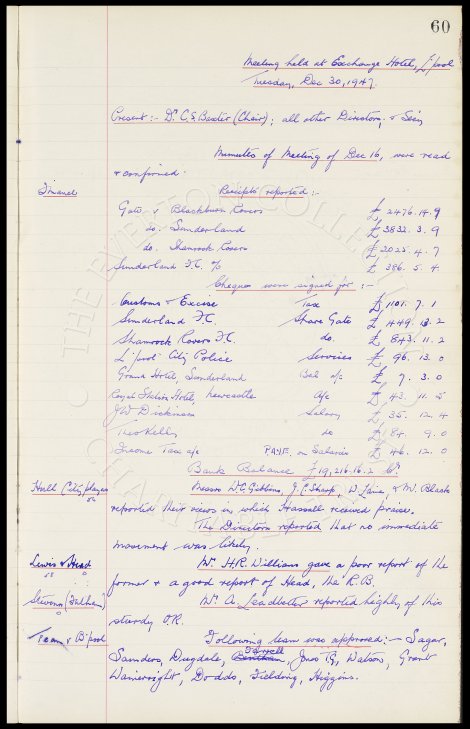 60
Meeting held at Exchange Hotel, L'pool
Tuesday, Dec 30, 1947.
Present :- Dr C.S. Baxter (Chair); all other Directors, & Sec'y
Minutes of Meeting of Dec 16, were read
& confirmed.
Finance Receipts reported :-
Gate v Blackburn Rovers £ 2476. 14. 9
do. Sunderland £ 3832. 3. 9
do. Shamrock Rovers £ 2025. 4. 7
Sunderland F.C. £ 386. 5. 4
Cheques were signed for :-
Customs & Excise Tax £ 1101. 7. 1
Sunderland F.C. Share Gate £ 449. 13. 2
Shamrock Rovers F.C. do. £ 843. 11. 2
L'pool City Police Services £ 96. 13. 0
Grand Hotel, Sunderland Bal a/c £ 7. 3. 0
Royal Station Hotel, Newcastle a/c £ 43. 11. 5
J.W. Dickinson Salary £ 35. 12. 4
Theo Kelly do £ 84. 9. 0
Income Tax a/c PAYE. on Salaries £ 46. 12. 0
Bank Balance £19,216. 16. 2
Hull City players Messrs W.C. Gibbins, J.C. Sharp, D. Lane, & W. Black
reported their views in which Hassall received praise.
The Directors reported that no immediate
movement was likely.
Lewis & Head Mr. H.R. Williams gave a poor report of the
former & a good report of Head, the R.B.
Stevens (Fulham) Mr. A. Leadbetter reported highly of this
sturdy O.R.
Team v B'pool Following team was approved :- Sagar,
Saunders, Dugdale, Bentham, Farrell, Jones T.G, Watson, Grant
Wainwright, Dodds, Fielding, Higgins.
THE EVERTON COLLECTION
CHARITABLE